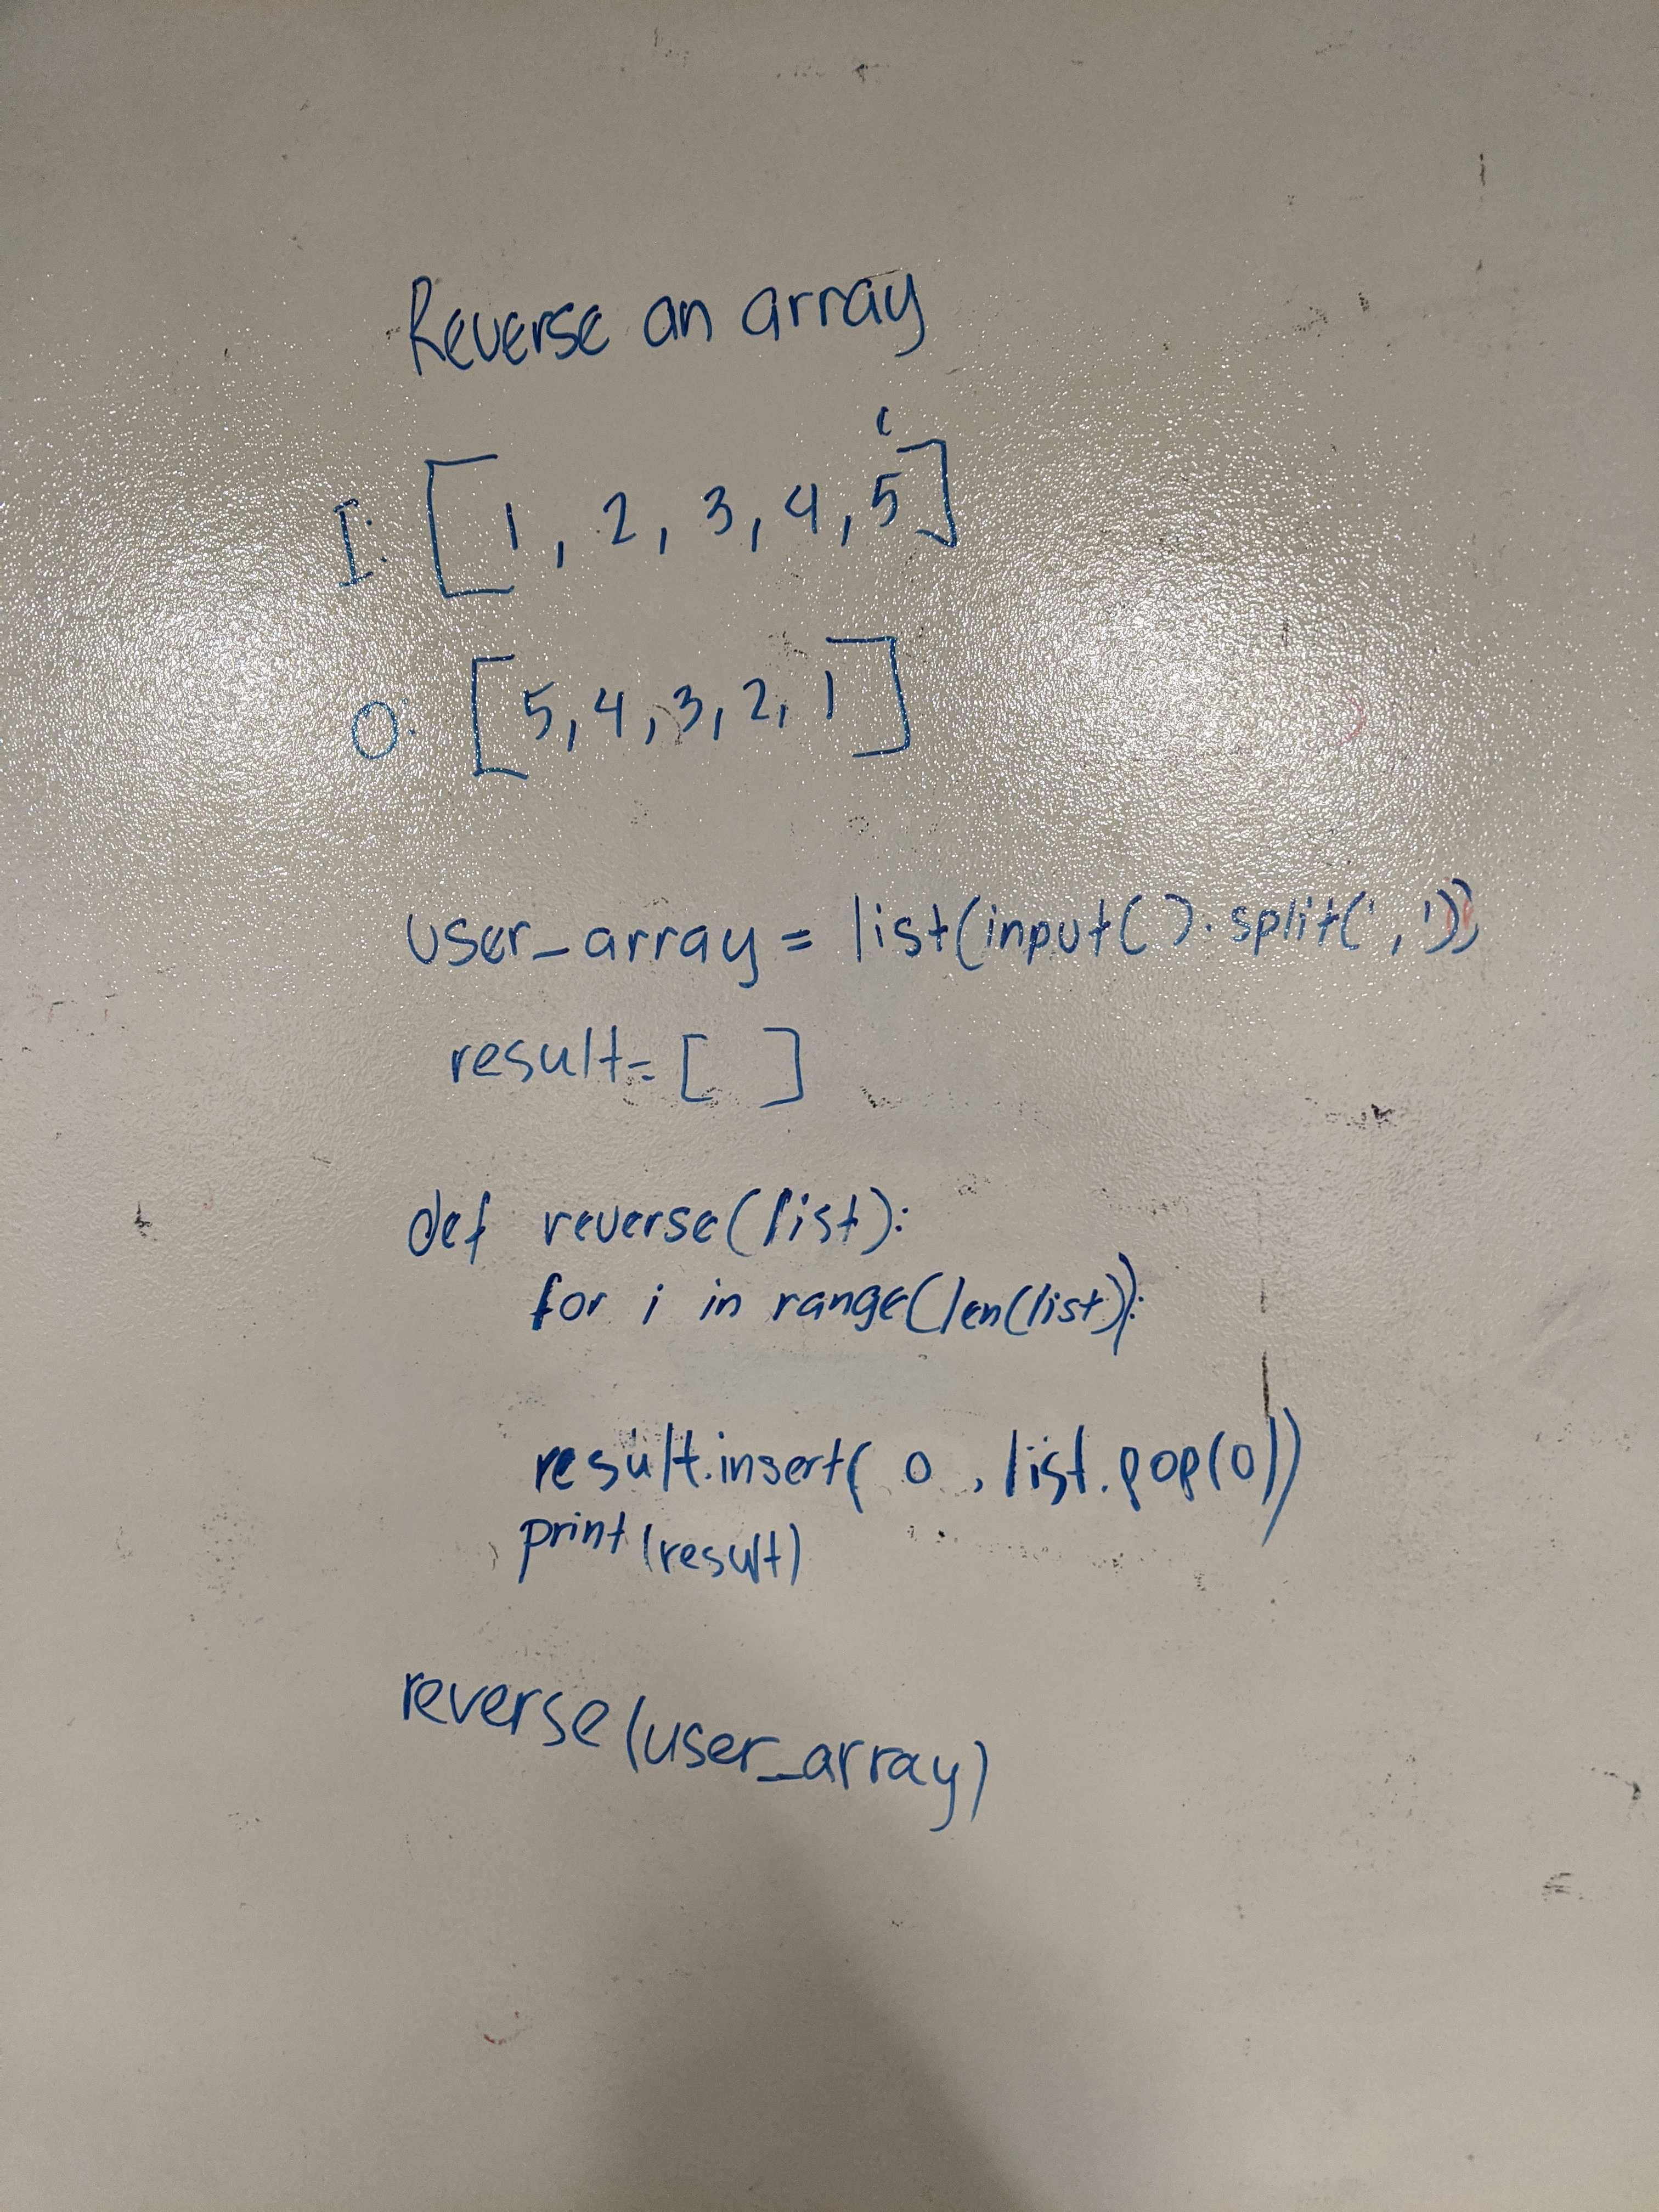 Reverse an array
I: [1, 2, 3, 4, 5]
O: [5, 4, 3, 2, 1]
user_array = list(input().split(','))
result = [ ]
def reverse(list):
for i in range(len(list)):
result.insert( 0 , list.pop(0))
print(result)
reverse(user_array)